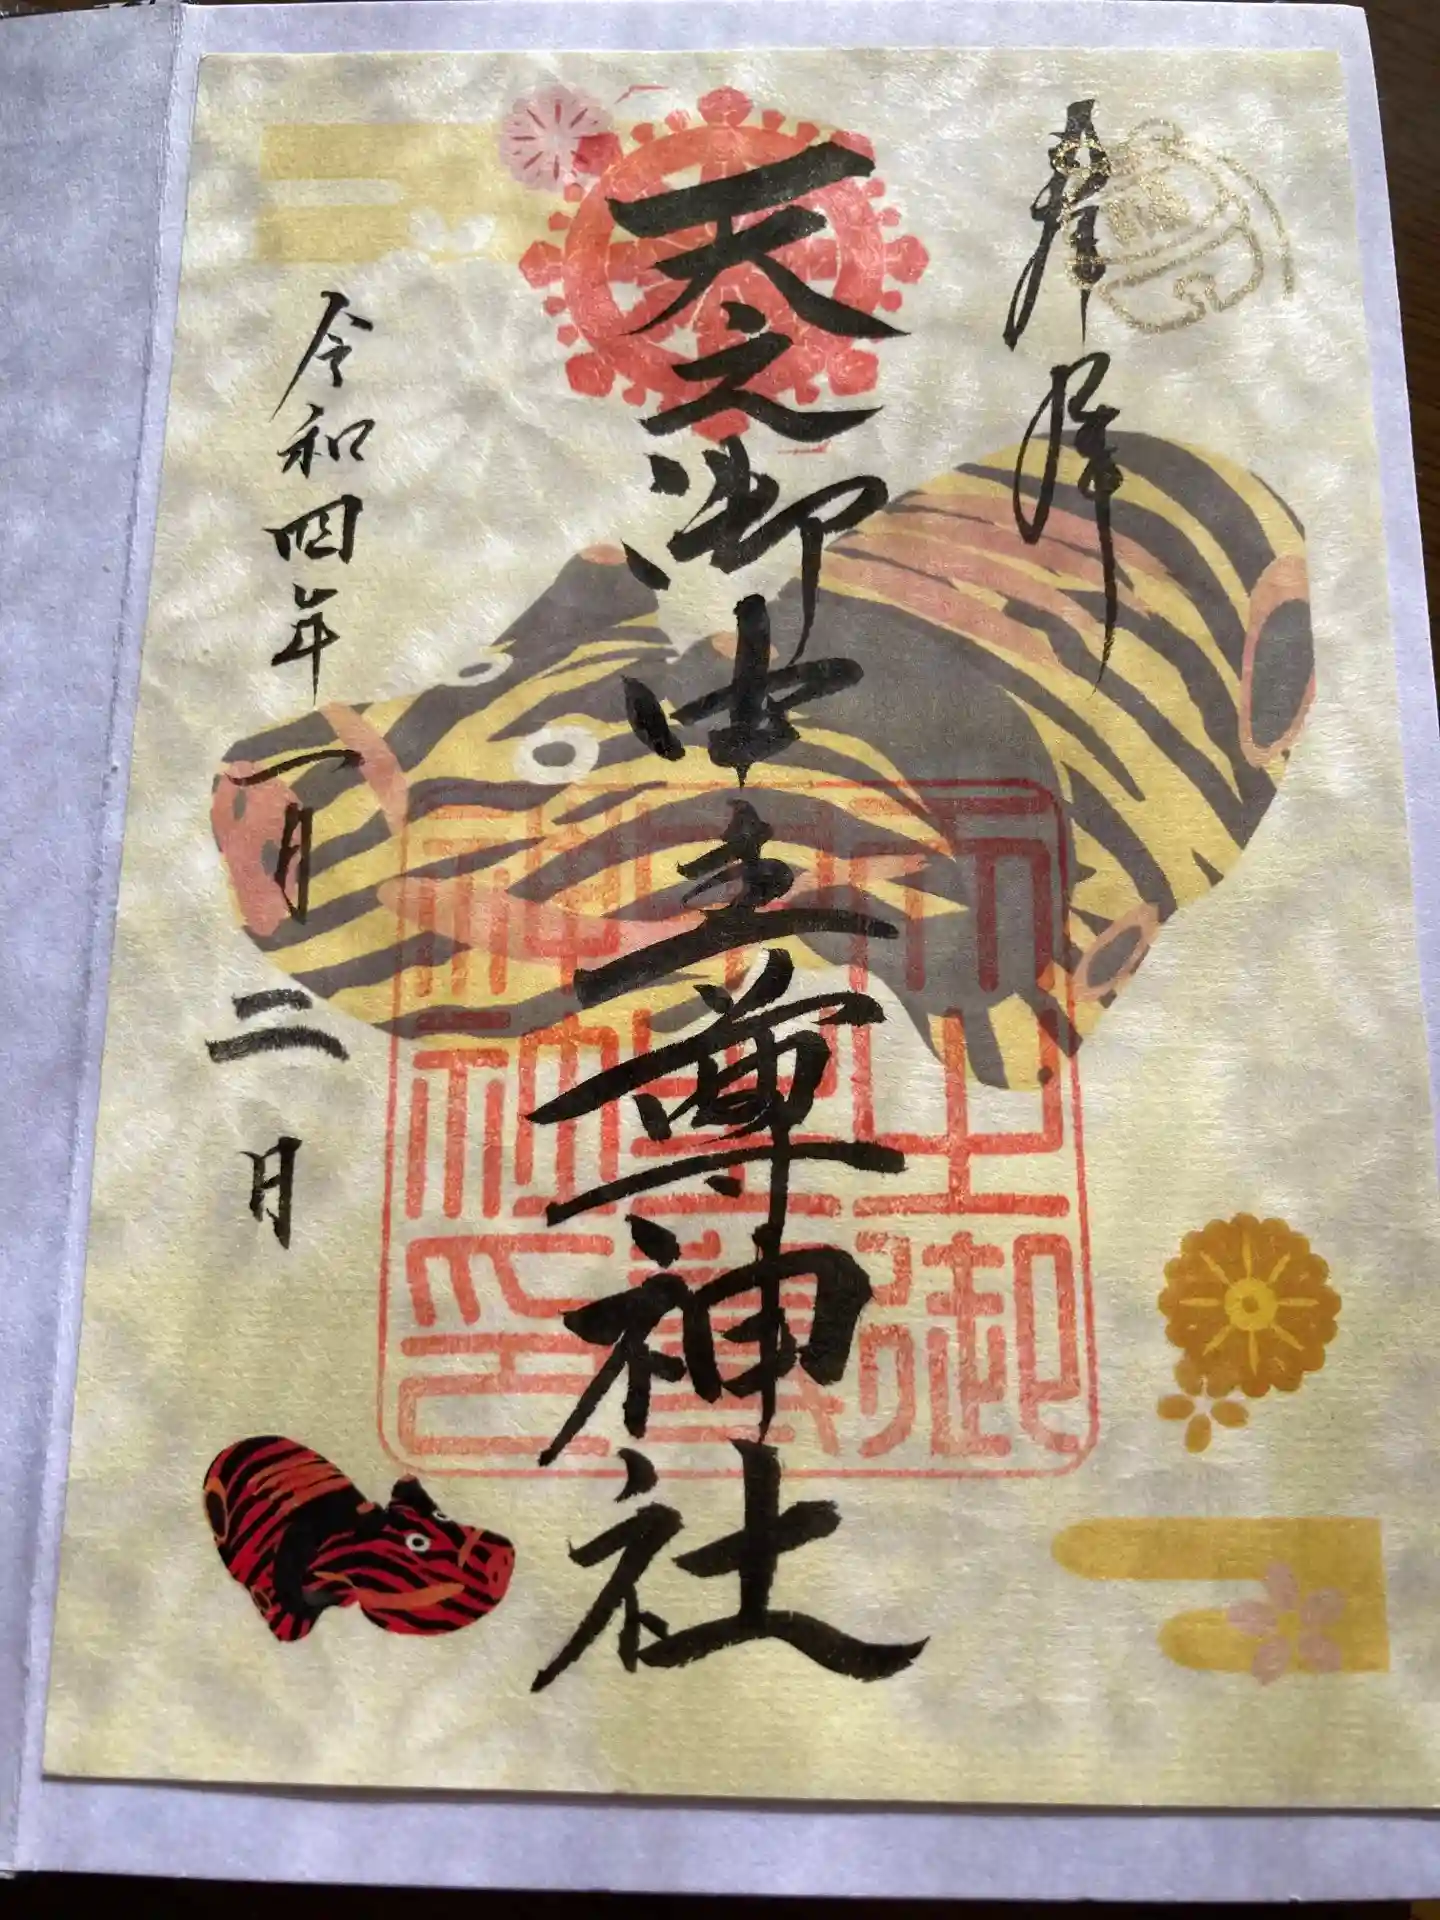 奉拝
天之御中主尊神社
令和四年一月二日
天之御
中主尊
神社印